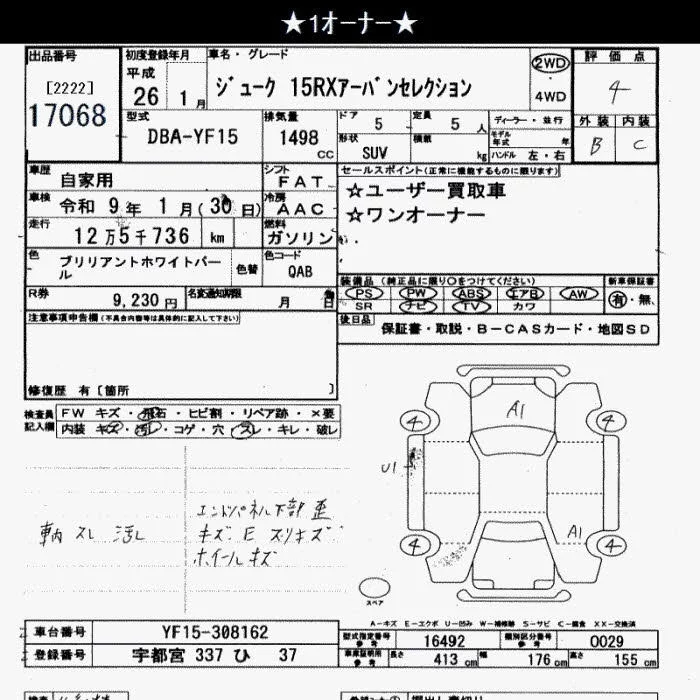 ★1オーナー★
出品番号
[2222]
17068
初度登録年月
平成
26 1月
車名・グレード
ジューク 15RXアーバンセレクション
2WD
4WD
評価点
4
外装 内装
B C
型式
DBA-YF15
排気量
1498
CC
ドア 5
定員 5 人
形状
SUV
積載 kg
ディーラー・並行
モデル年式 年
ハンドル 左・右
車歴
自家用
シフト
FAT
セールスポイント(正常に機能するものに限ります)
☆ユーザー買取車
☆ワンオーナー
車検
令和 9年 1月(30日)
冷房
AAC
走行
12万5千736 km
燃料
ガソリン
色
ブリリアントホワイトパール
色替
色コード
QAB
装備品(純正品に限り○をつけてください)
PS PW ABS エアB AW
SR ナビ TV カワ
新車保証書
有・無
R券
9,230円
名変通知期限
月 日
後日品
保証書・取説・B-CASカード・地図SD
注意事項申告欄(不具合内容等は具体的に記入して下さい)
修復歴 有[箇所 ]
検査員記入欄
FW キズ・飛石・ヒビ割・リペア跡・×要
内装 キズ・汚レ・コゲ・穴・スレ・キレ・破レ
A1
4
4
U1
A1
4
4
スペア
車内 スレ 汚レ
エンドパネル下部 歪
キズ E スリキズ
ホイールキズ
A-キズ E-エクボ U-凹み W-補修跡 S-サビ C-腐食 XX-交換済
車台番号
YF15-308162
登録番号
宇都宮 337 ひ 37
型式指定番号 参考
16492
類別区分番号 参考
0029
車庫証明用 参考
長さ 413 cm
幅 176 cm
高さ 155 cm